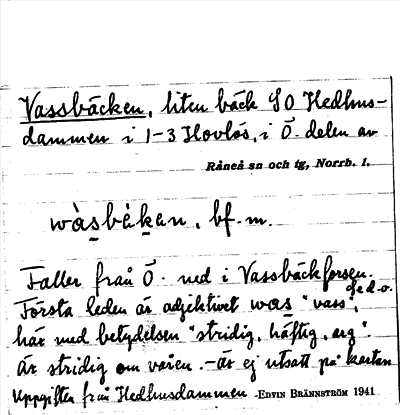 Vassbäcken, liten bäck SO Hedhus-
dammen i 1-3 Hovlös, i Ö. delen av
Råneå sn och tg, Norrb. l.
wàsbèkan, bf. m.
Faller från Ö. ned i Vassbäckforsen.
Första leden är adjektivet was "vass", se d.o.
här med betydelsen "stridig, häftig, arg".
Är stridig om våren. - är ej utsatt på kartan
Uppgiften från Hedhusdammen - EDVIN BRÄNNSTRÖM 1941